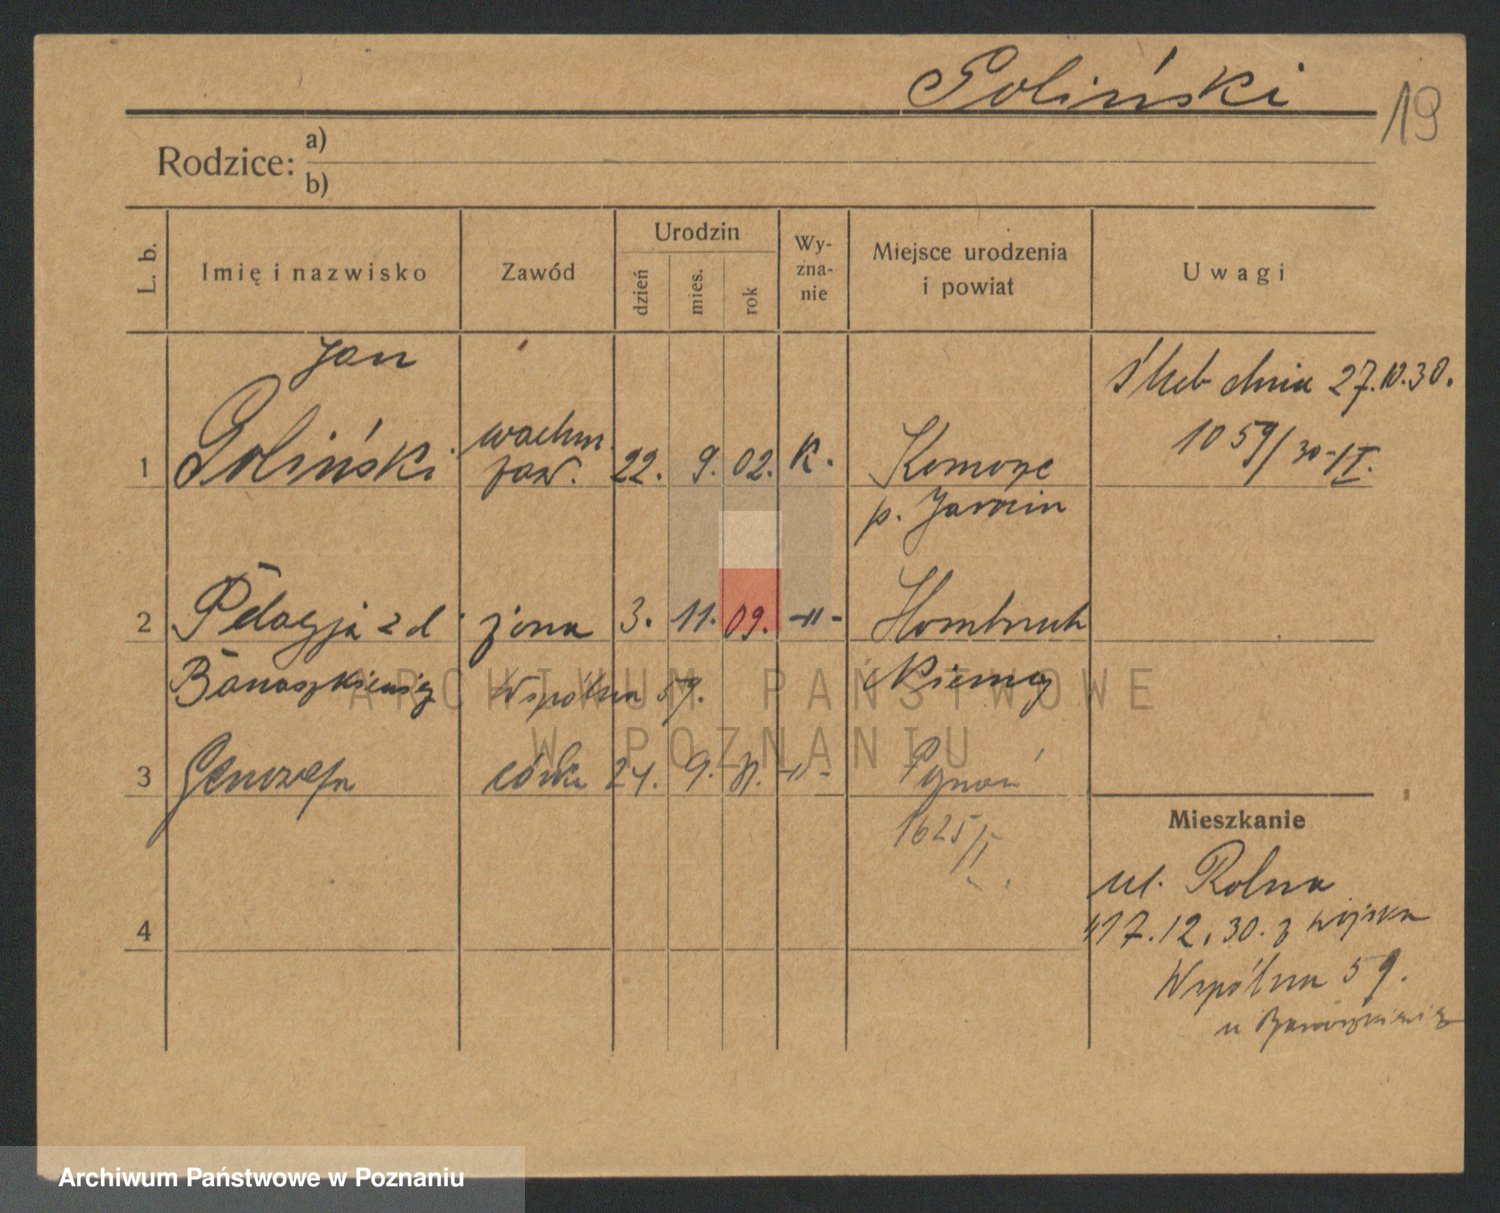 Goliński
19
Rodzice: a)
b)
L. b.
Imię i nazwisko
Zawód
Urodzin
dzień
mies.
rok
Wy-
zna-
nie
Miejsce urodzenia
i powiat
Uwagi
Jan
1 Goliński wachm. zaw. 22. 9. 02. K. Komorze
p. Jarocin
Ślub dnia 27.10.30.
1059/30-II.
2 Pelagja z d. żona 3. 11. 09. -"- Hombruch
Banaszkiewicz Wspólna 59. Niemcy
3 Genowefa córka 24. 9. 31. -"- Poznań
1625/I
4
Mieszkanie
ul. Rolna
17.12.30. z wojska
Wspólna 59.
u Banaszkiewicz
ARCHIWUM PAŃSTWOWE
W POZNANIU
Archiwum Państwowe w Poznaniu